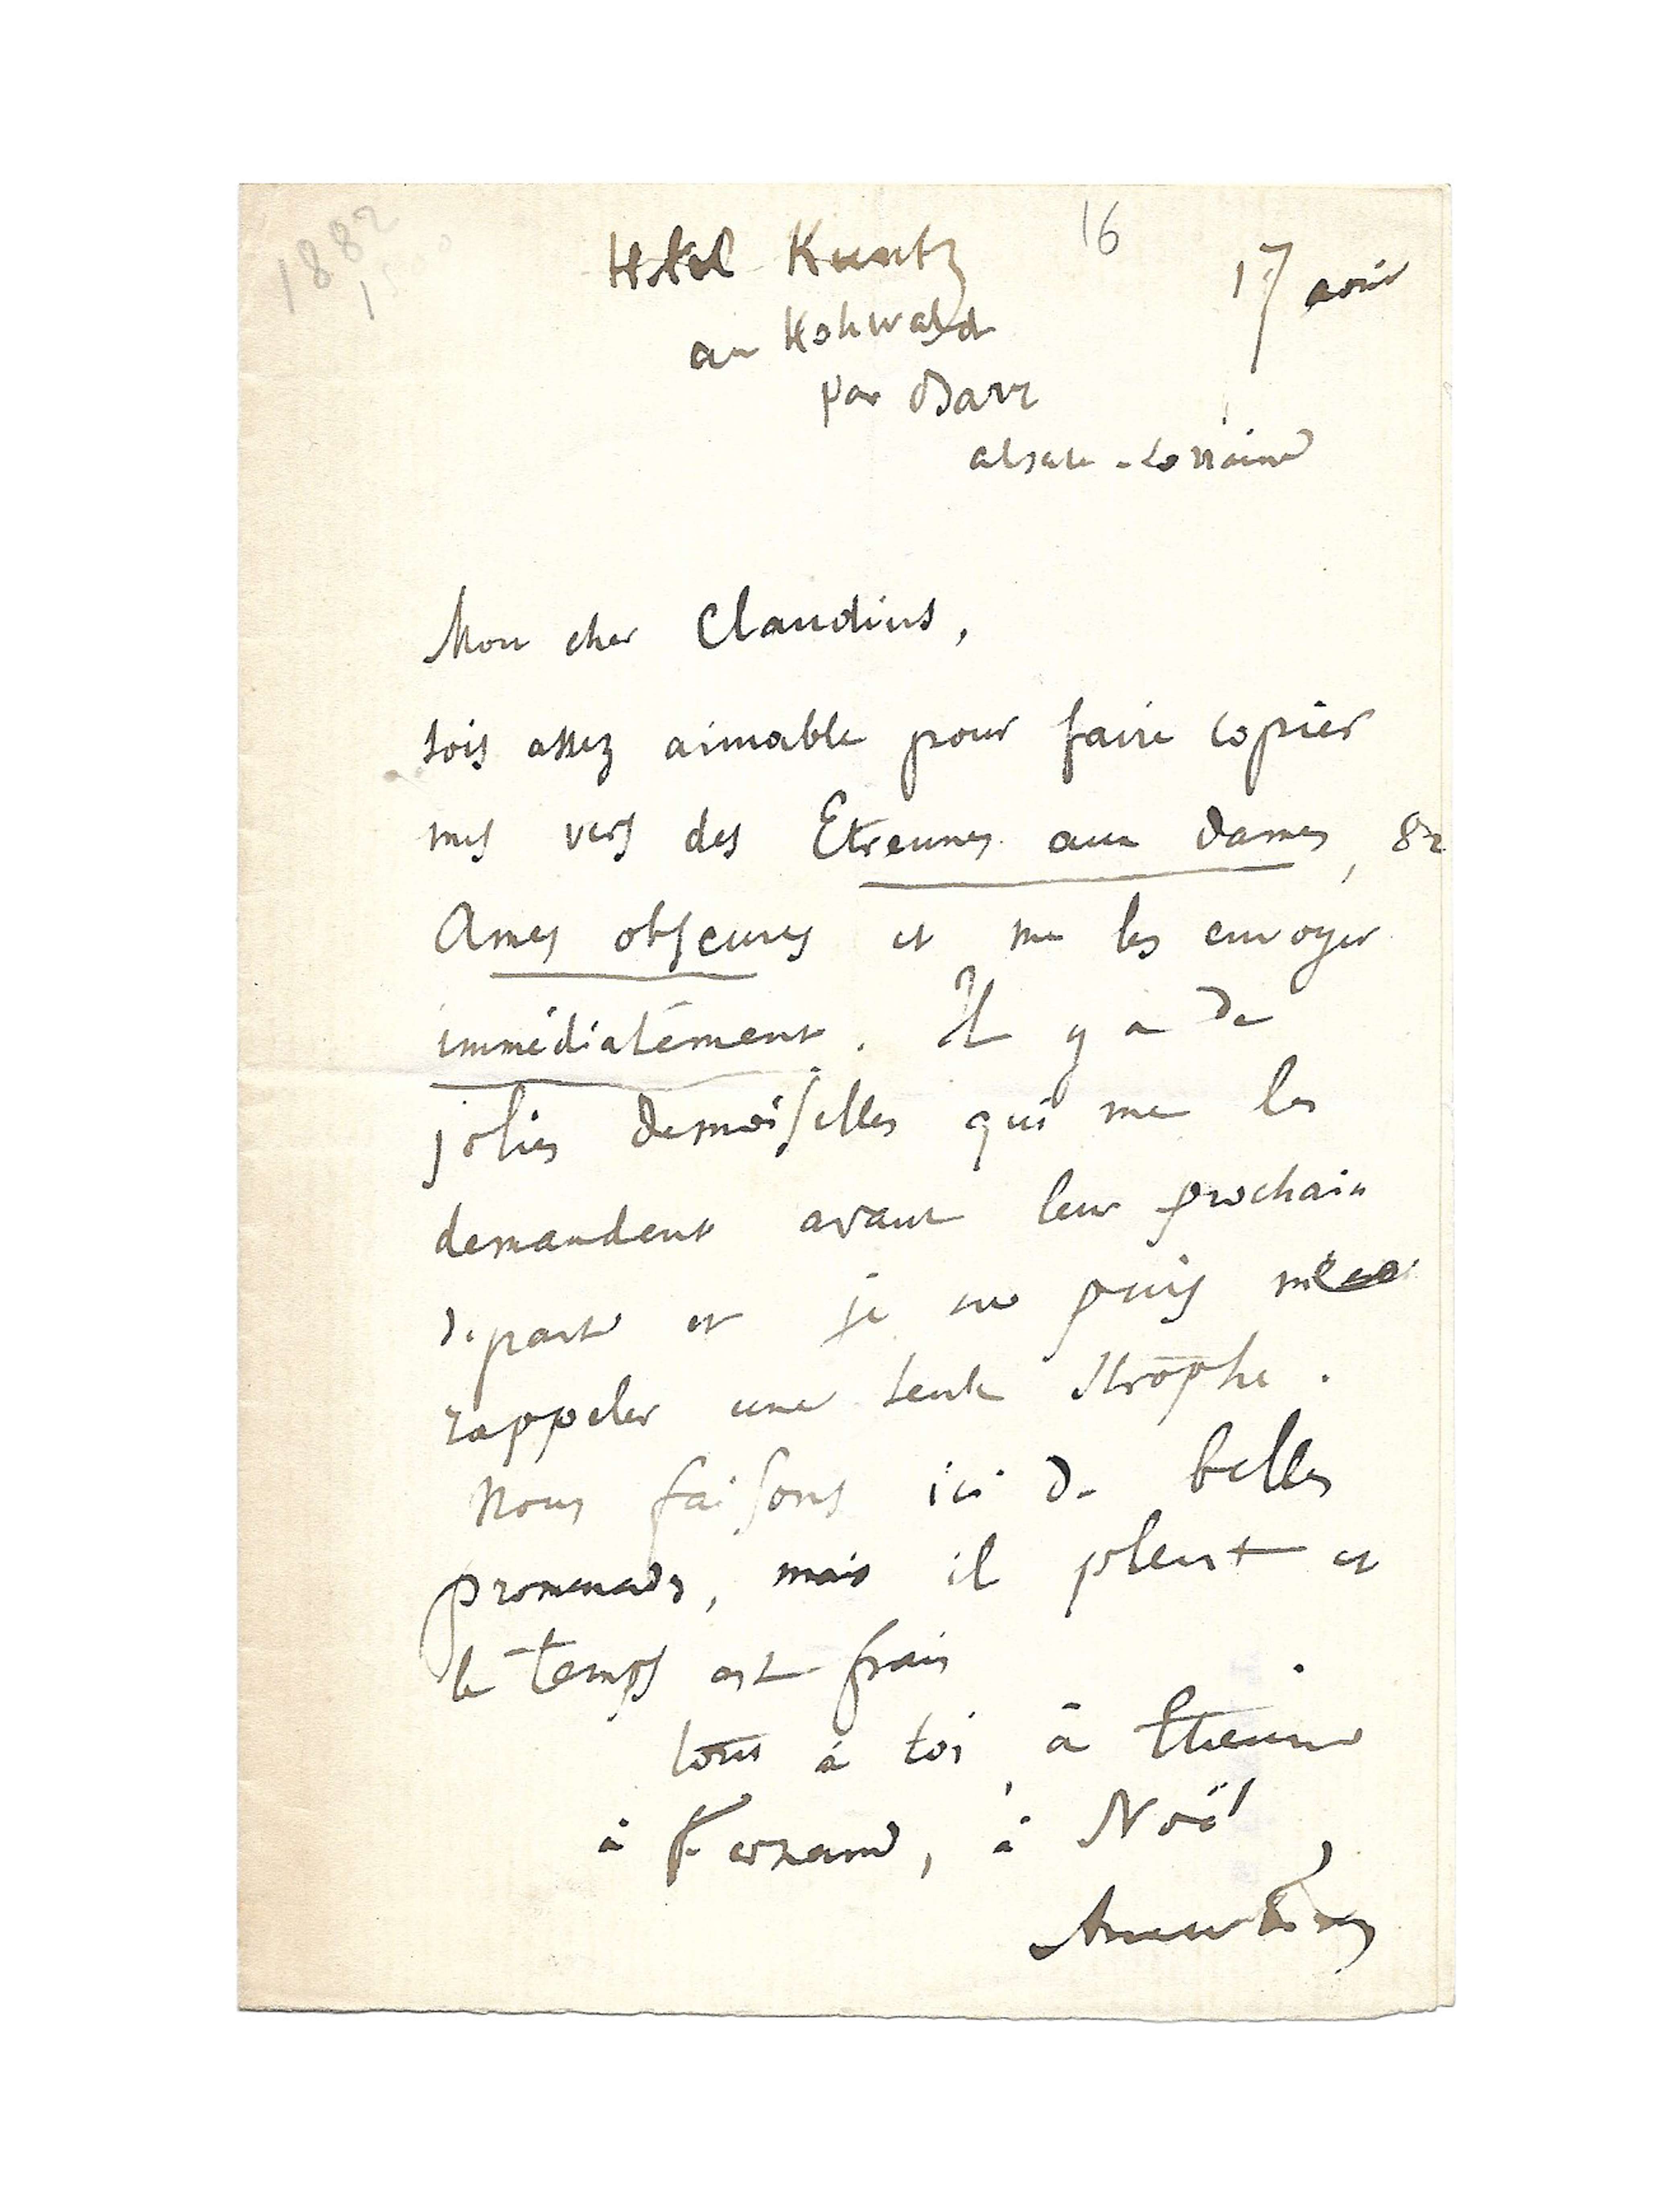 1882
16
Hotel Kuntz
17 août
au Hohwald
par Barr
alsace-Lorraine
Mon cher Claudius,
sois assez aimable pour faire copier
mes vers des Etrennes aux dames, 82
Ames obscures et me les envoyer
immédiatement. Il y a de
jolies demoiselles qui me les
demandent avant leur prochain
départ et je ne puis me
rappeler une seule strophe.
Nous faisons ici de belles
promenades, mais il pleut et
le temps est frais
tout à toi, à Etienne
à Fernand, à Noël